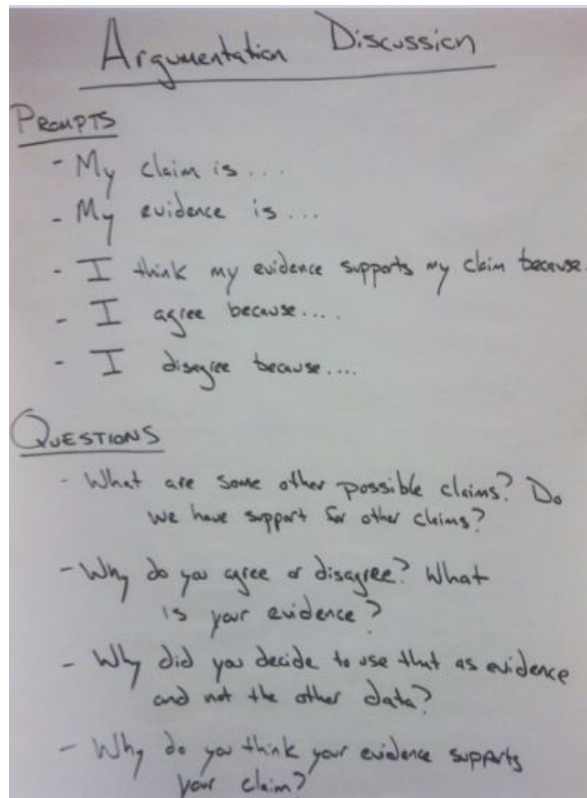 Argumentation Discussion
PROMPTS
- My claim is...
- My evidence is...
- I think my evidence supports my claim because.
- I agree because....
- I disagree because....
QUESTIONS
- What are some other possible claims? Do
we have support for other claims?
- Why do you agree or disagree? What
is your evidence?
- Why did you decide to use that as evidence
and not the other data?
- Why do you think your evidence supports
your claim?